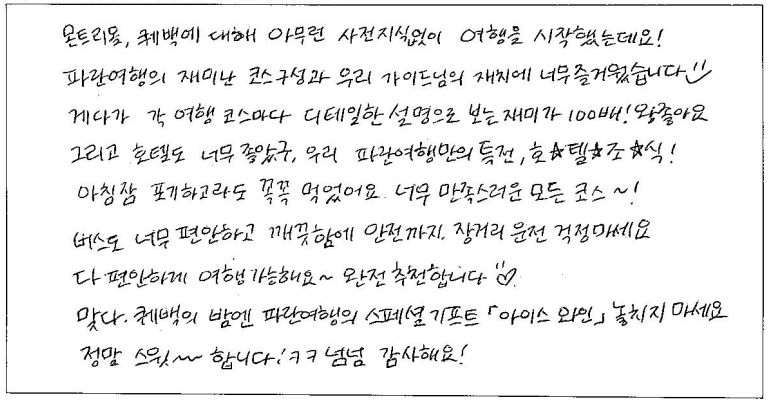 몬트리올, 퀘백에 대해 아무런 사전지식없이 여행을 시작했는데요!
파란여행의 재미난 코스구성과 우리 가이드님의 재치에 너무즐거웠습니다
게다가 각 여행 코스마다 디테일한 설명으로 보는 재미가 100배! 왕좋아요
그리고 호텔도 너무 좋았구, 우리 파란여행만의 특전, 호☆텔☆조☆식!
아침잠 포기하고라도 꼭꼭 먹었어요. 너무 만족스러운 모든 코스~!
버스도 너무 편안하고 깨끗함에 안전까지. 장거리 운전 걱정마세요
다 편안하게 여행가능해요~ 완전 추천합니다 ♡
맞다. 퀘백의 밤엔 파란여행의 스페셜기프트 「아이스 와인」 놓치지 마세요
정말 스윗~~ 합니다! ㅋㅋ 넘넘 감사해요!